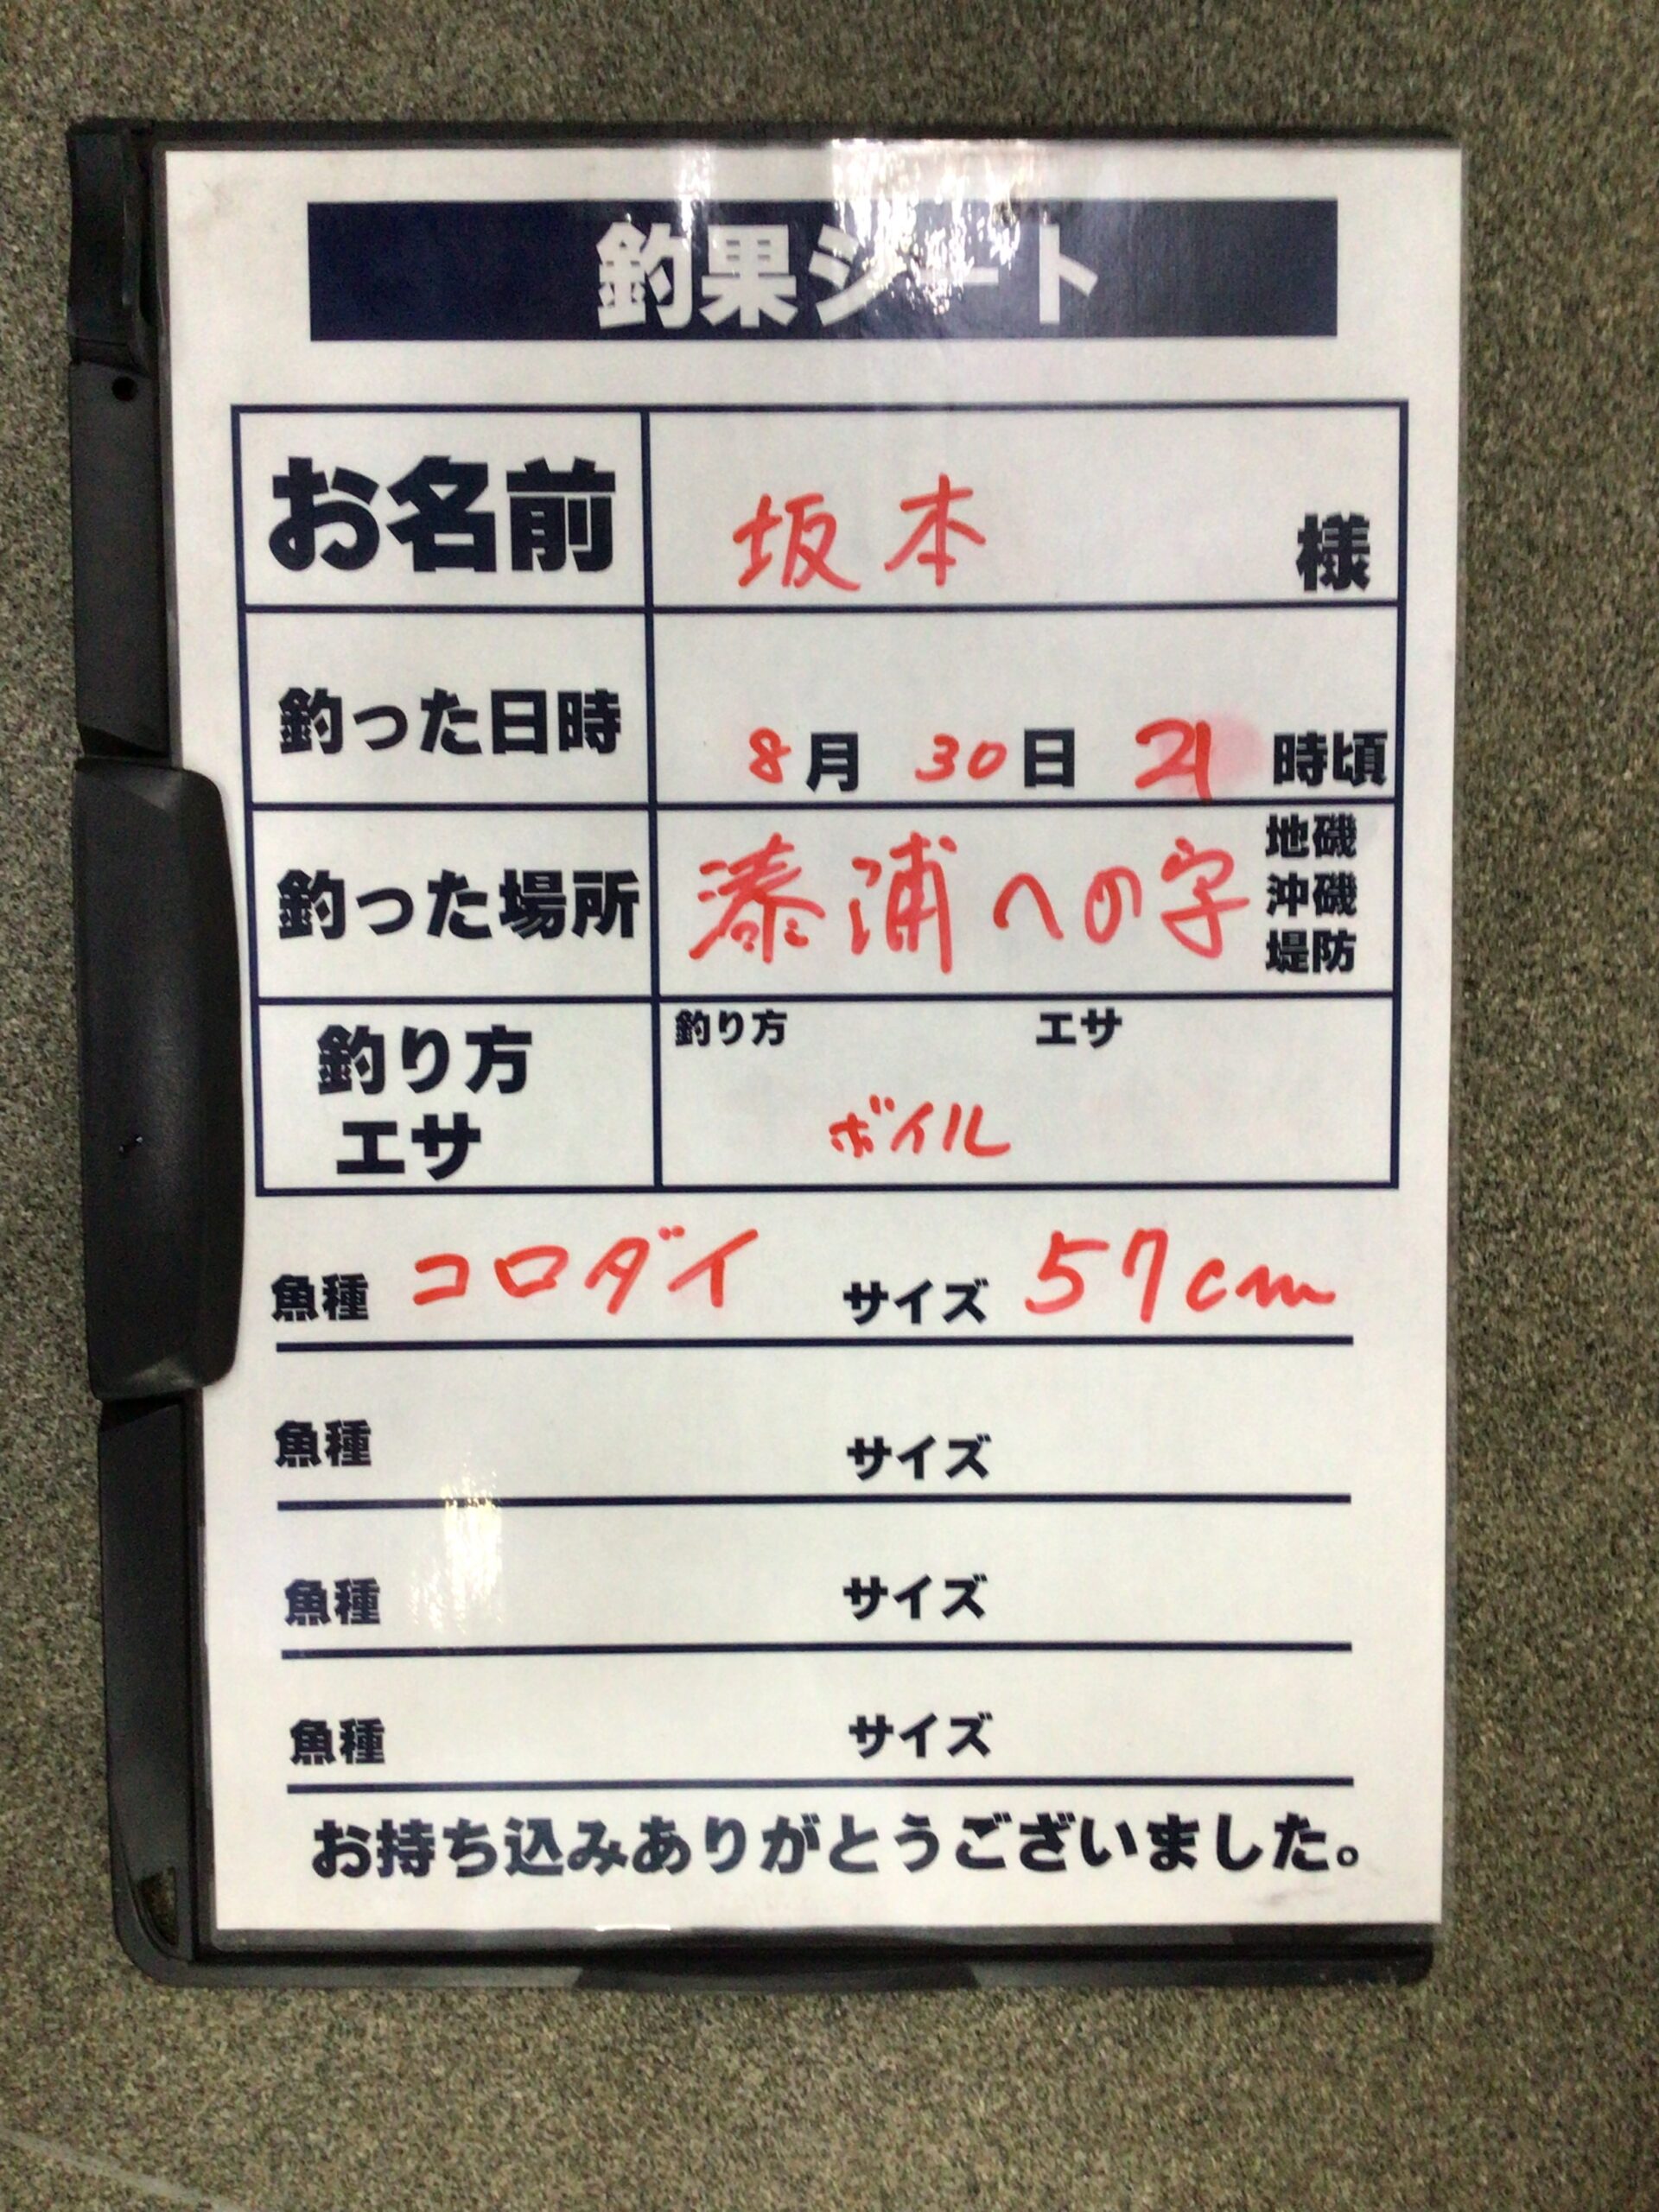 釣果シート
お名前 坂本 様
釣った日時 8月 30日 21時頃
釣った場所 湊浦への字 地磯 沖磯 堤防
釣り方 エサ
釣り方 エサ
ボイル
魚種 コロダイ サイズ 57cm
魚種 サイズ
魚種 サイズ
魚種 サイズ
お持ち込みありがとうございました。